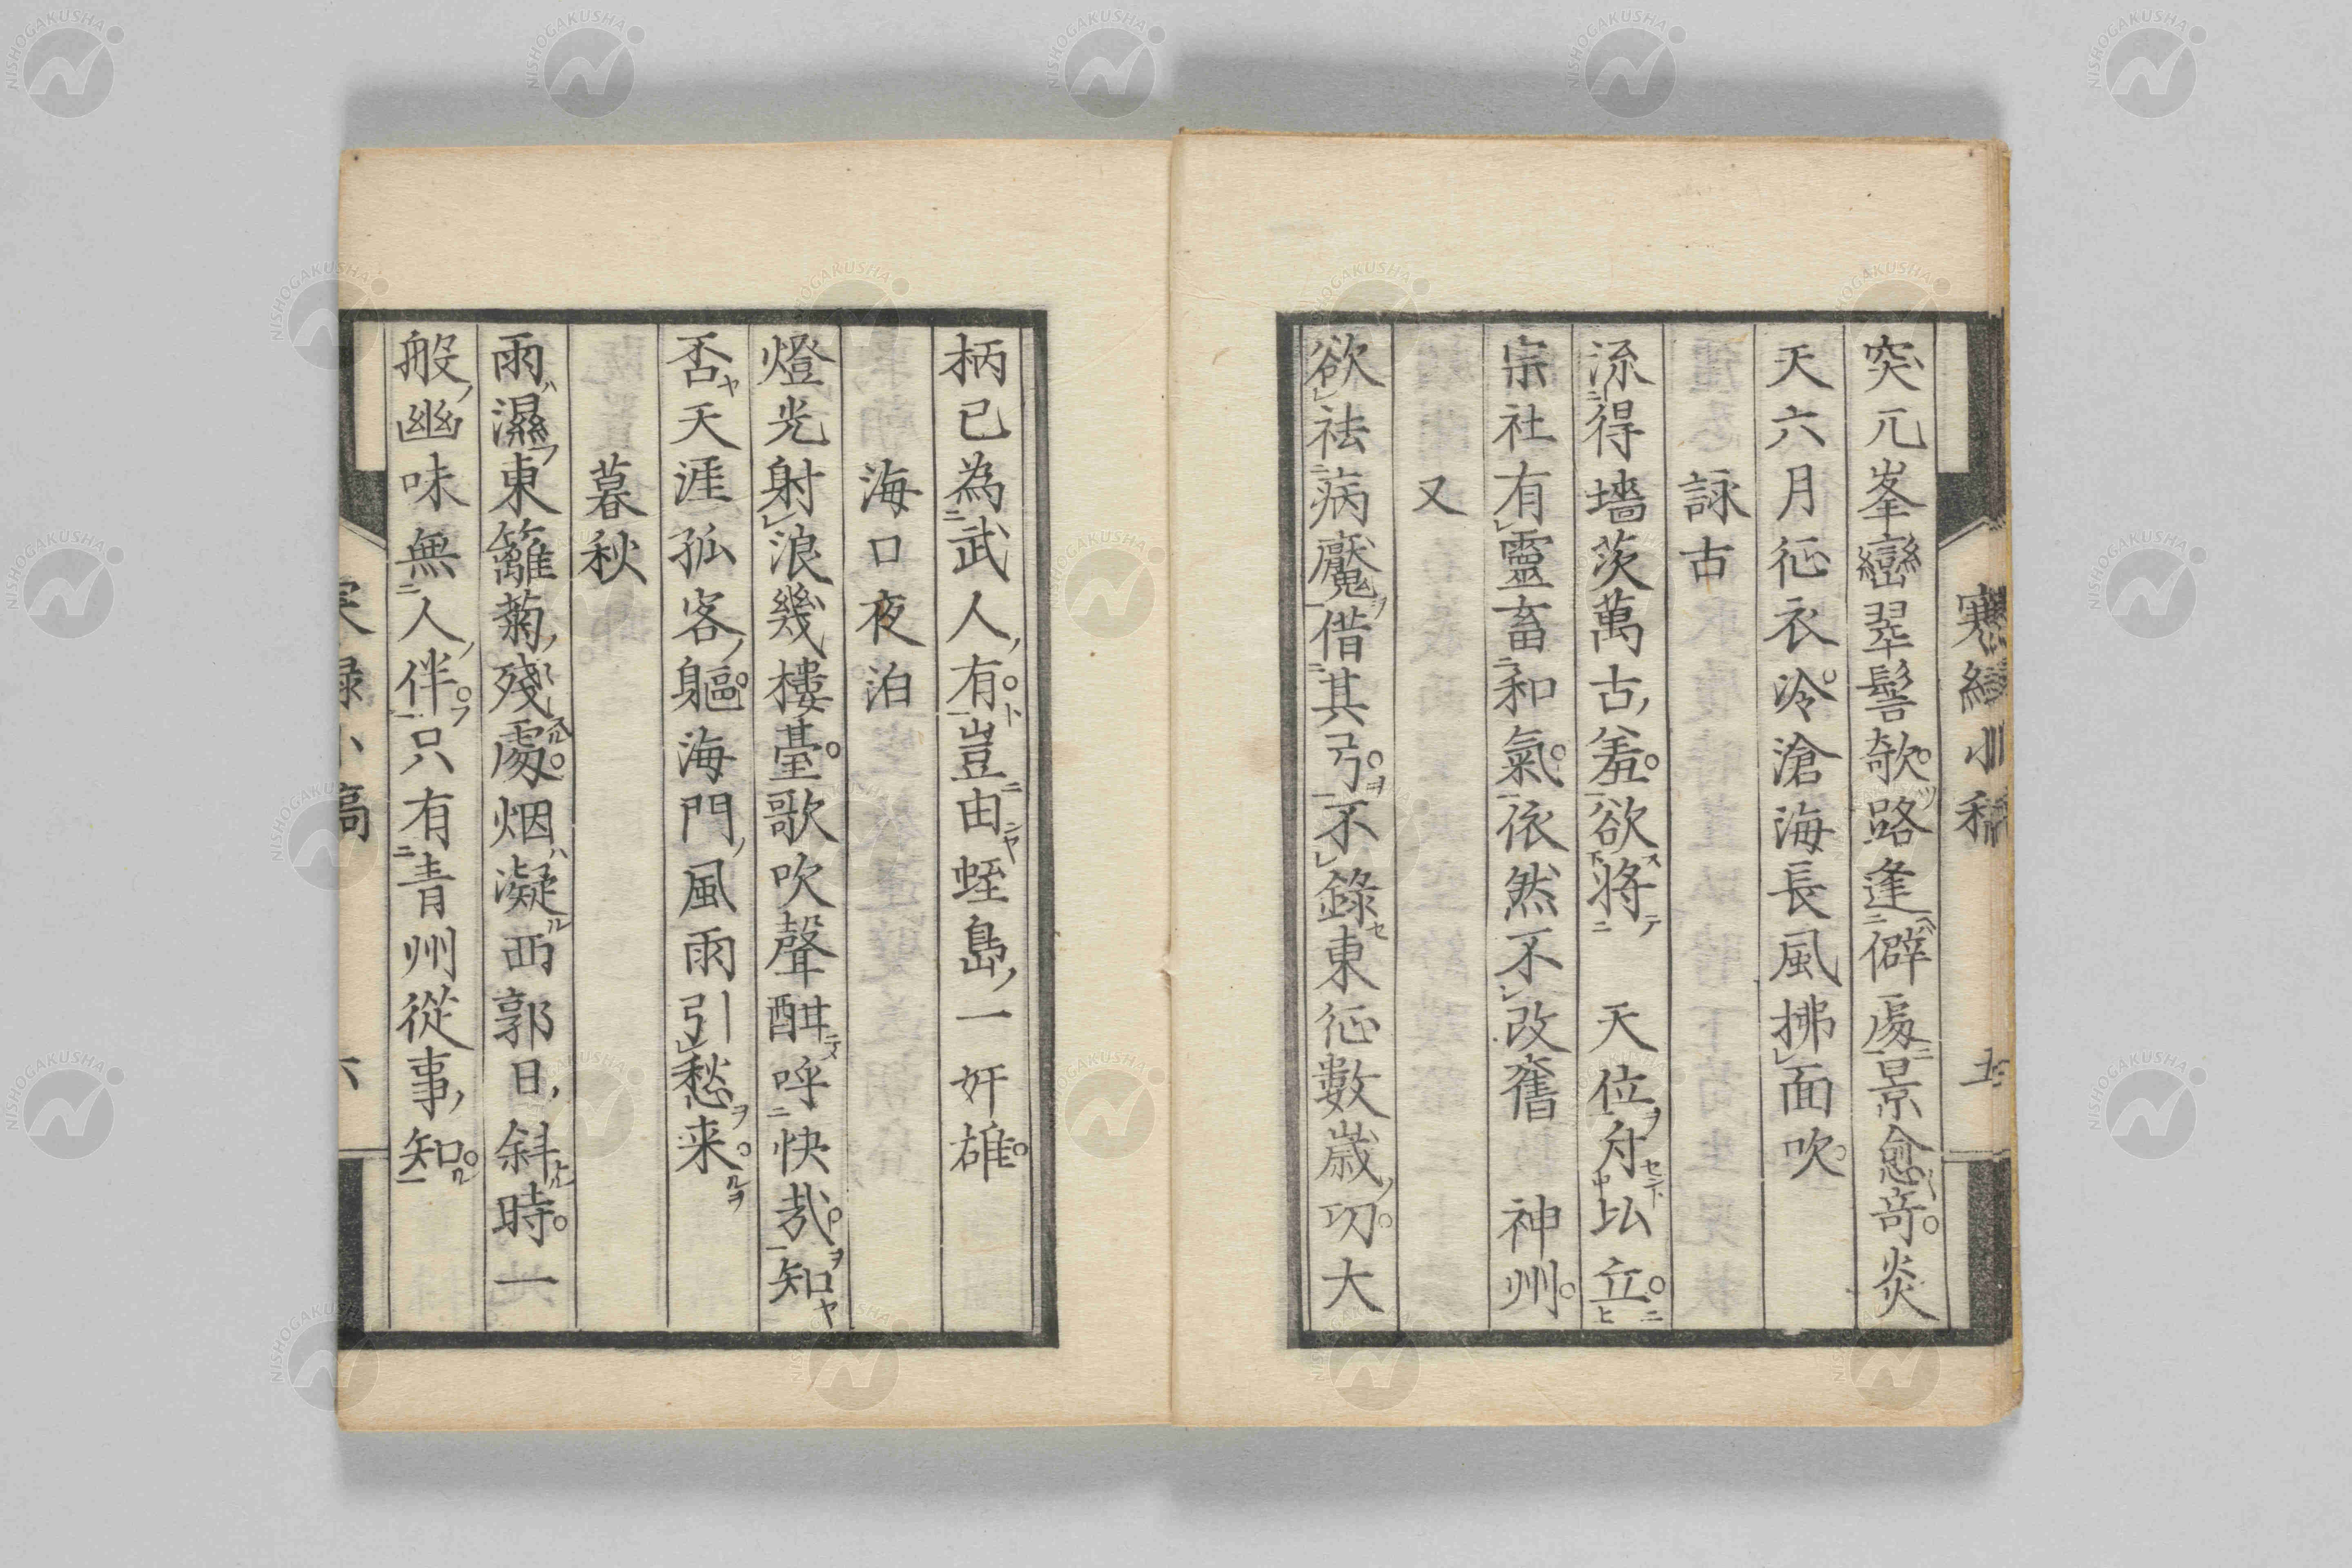 寒綠小稿　五
突兀峯巒翠髻欹路逢僻處景愈奇炎
天六月征衣冷滄海長風拂面吹
詠古
流得墻茨萬古羞欲將　天位舟比丘
宗社有靈畜和氣依然不改舊　神州
又
欲祛病魔借其弓不錄東征數歲功大
柄已為武人有豈由蛭島一奸雄
海口夜泊
燈光射浪幾樓臺歌吹聲酣呼快哉知
否天涯孤客軀海門風雨引愁来
暮秋
雨濕東籬菊殘處烟凝西郭日斜時一
般幽味無人伴只有青州從事知
寒綠小稿　六